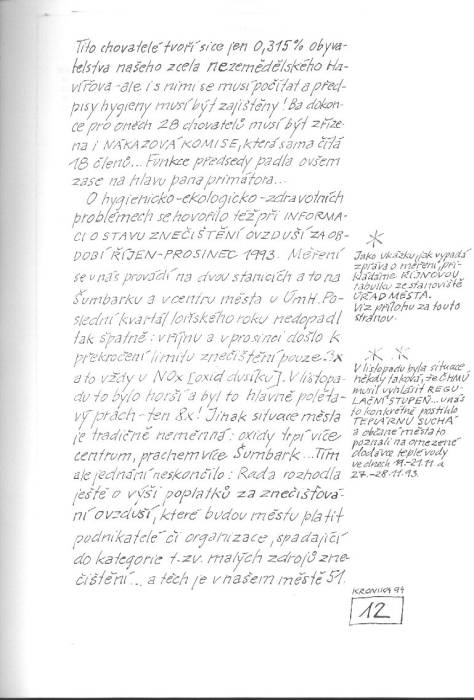 Tito chovatelé tvoří sice jen 0,315% obyva-
telstva našeho zcela nezemědělského Ha-
vířova - ale i s nimi se musí počítat a před-
pisy hygieny musí být zajištěny! Ba dokon-
ce pro oněch 28 chovatelů musí být zříze-
na i NÁKAZOVÁ KOMISE, která sama čítá
18 členů... Funkce předsedy padla ovšem
zase na hlavu pana primátora...
O hygienicko-ekologicko-zdravotních
problémech se hovořilo též při INFORMA-
CI O STAVU ZNEČIŠTĚNÍ OVZDUŠÍ ZA OB-
DOBÍ ŘÍJEN-PROSINEC 1993. Měření
se u nás provádí na dvou stanicích a to na
Šumbarku a v centru města u ÚmH. Po-
slední kvartál loňského roku nedopadl
tak špatně: v říjnu a v prosinci došlo k
překročení limitu znečištění pouze 3x
a to vždy u NOx [oxid dusíku]. V listopa-
du to bylo horší a byl to hlavně poléta-
vý prach - ten 8x! Jinak situace města
je tradičně neměnná: oxidy trpí více
centrum, prachem více Šumbark... Tím
ale jednání neskončilo: Rada rozhodla
ještě o výši poplatků za znečišťová-
ní ovzduší, které budou městu platit
podnikatelé či organizace, spadající
do kategorie t.zv. malých zdrojů zne-
čištění... a těch je v našem městě 51.
*
Jako ukázku, jak vypadá
zpráva o měření, při-
kládáme ŘÍJNOVOU
tabulku ze stanoviště
ÚŘAD MĚSTA.
Viz přílohu za touto
stranou.
* *
V listopadu byla situace
někdy taková, že ČHMÚ
musil vyhlásit REGU-
LAČNÍ STUPEŇ... u nás
to konkrétně postihlo
TEPLÁRNU SUCHÁ
a občané města to
poznali na omezené
dodávce teplé vody
ve dnech 19.-21.11 a
27.-28.11.93.
KRONIKA 94
12